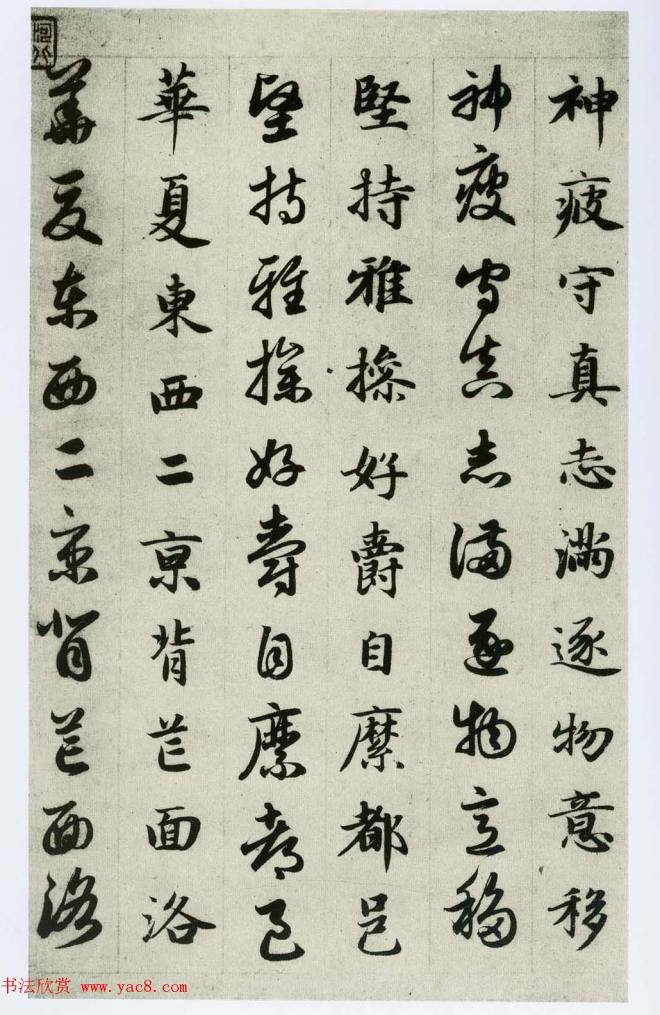 神疲守真志滿逐物意移
神疲守真志滿逐物意移
堅持雅操好爵自縻都邑
堅持雅操好爵自縻都邑
華夏東西二京背芒面洛
華夏東西二京背芒面洛
书法欣赏 www.yac8.com